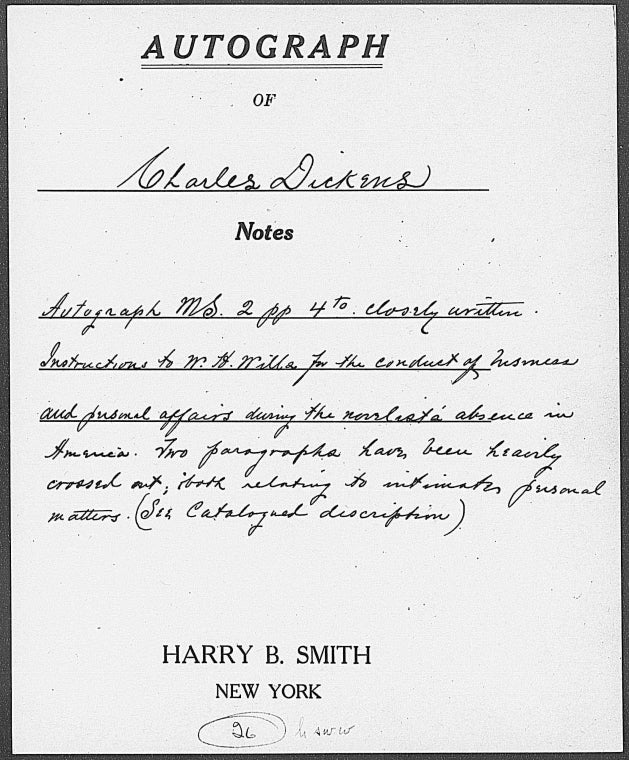 AUTOGRAPH
OF
Charles Dickens
Notes
Autograph MS. 2 pp 4to. closely written.
Instructions to W. H. Wills for the conduct of business
and personal affairs during the novelist's absence in
America. Two paragraphs have been heavily
crossed out; both relating to intimate personal
matters. (See Catalogued discription)
HARRY B. SMITH
NEW YORK
26